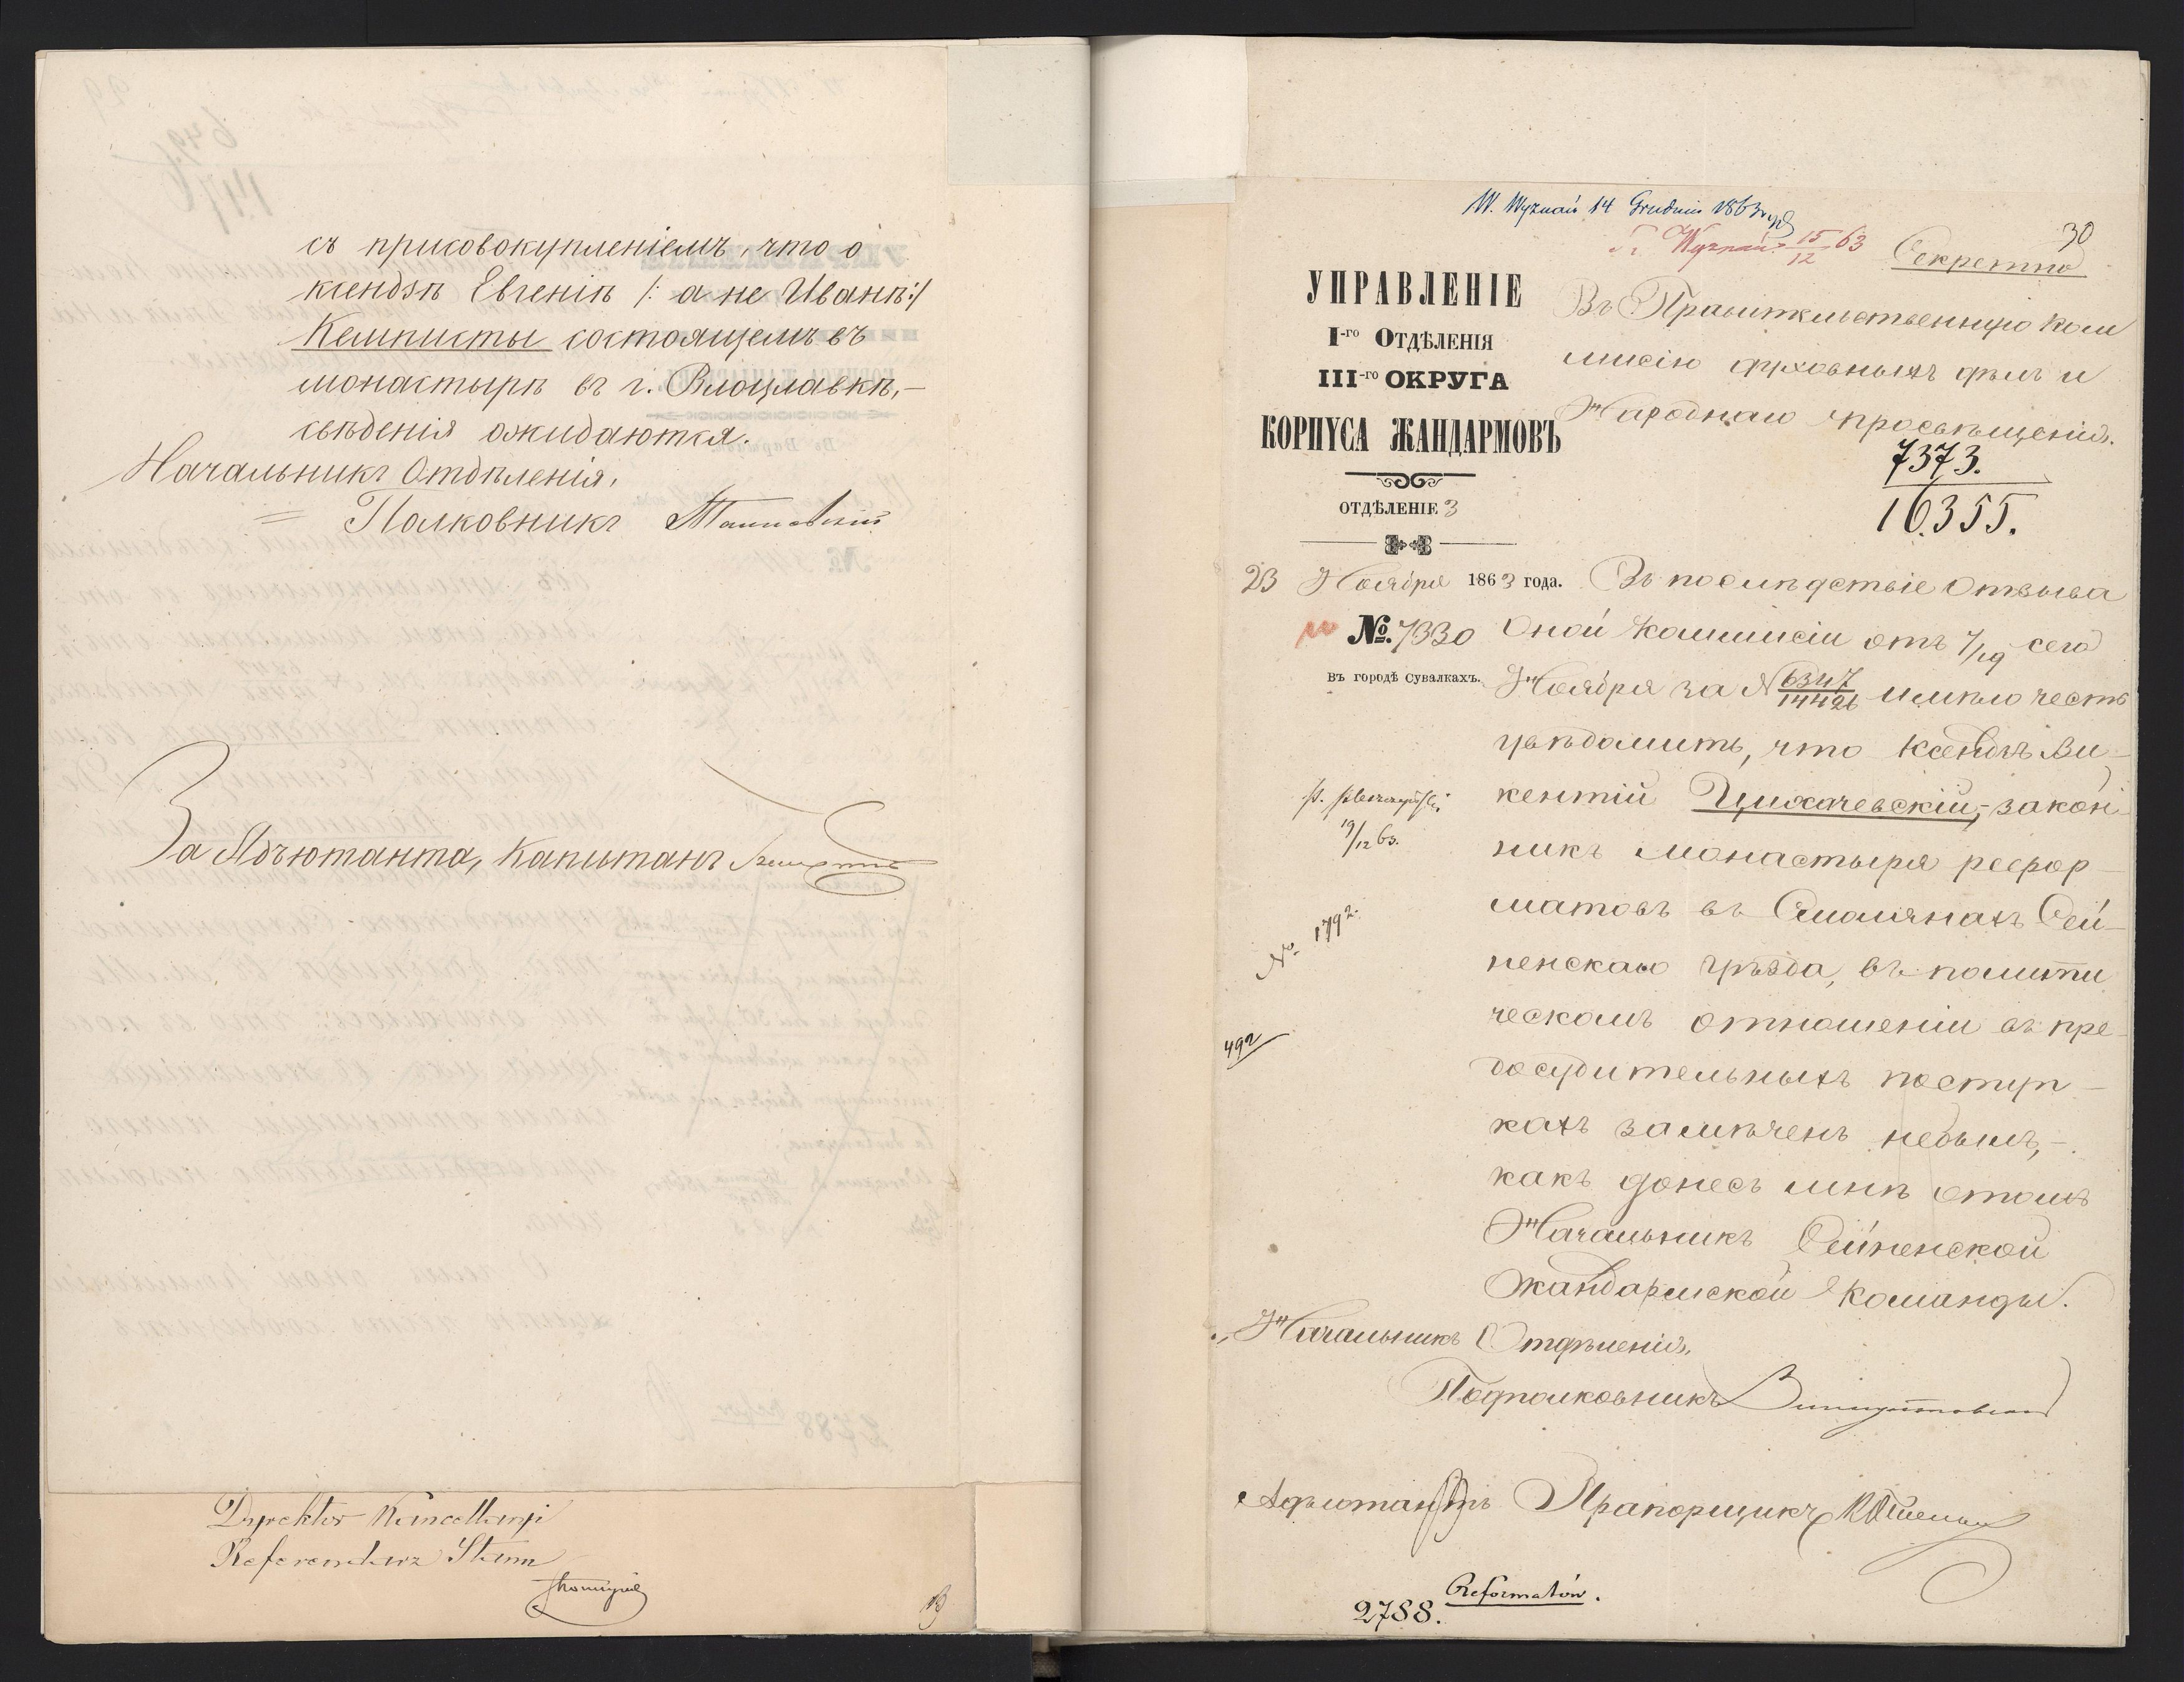 съ присовокупленіемъ, что о
ксендзѣ Евгеніѣ /: а не Иванѣ:/
Кемписты состоящемъ въ
монастырѣ въ г. Влоцлавкѣ,—
свѣденія ожидаются.
Начальникъ Отдѣленія,
Полковникъ
За Адъютанта, Капитанъ
Dyrektor Kancellaryi
Referendarz Stanu
W. Wyznań 14 Grudnia 1863
W. Wyznań 15/12 63
30
Секретно
УПРАВЛЕНІЕ
I-го ОТДѢЛЕНІЯ
III-го ОКРУГА
КОРПУСА ЖАНДАРМОВЪ
ОТДѢЛЕНІЕ 3
23 Ноября 1863 года.
№. 7330
въ городѣ Сувалкахъ.
Въ Правительственную Ком
мисію духовныхъ дѣлъ и
Народнаго просвѣщенія.
7373.
16355.
Въ послѣдствіе Отзыва
Оной Коммисіи отъ 7/19 сего
Ноября за № 6347/14426 имѣю честь
увѣдомить, что Ксендзъ Ви-
кентій Цихачевскій,- закон
никъ монастыря рефор-
матовъ въ Смолянахъ Сей-
ненскаго уѣзда, въ полити
ческомъ отношеніи въ пре-
досудительныхъ поступ-
кахъ замѣченъ небылъ,-
какъ донесъ мнѣ отомъ
Начальникъ Сейненской
Жандармской Команды.
Начальникъ Отдѣленія,
Подполковникъ
Адъютантъ Прапорщикъ
19/12 63.
No. 1792.
492
Reformatów.
2788.